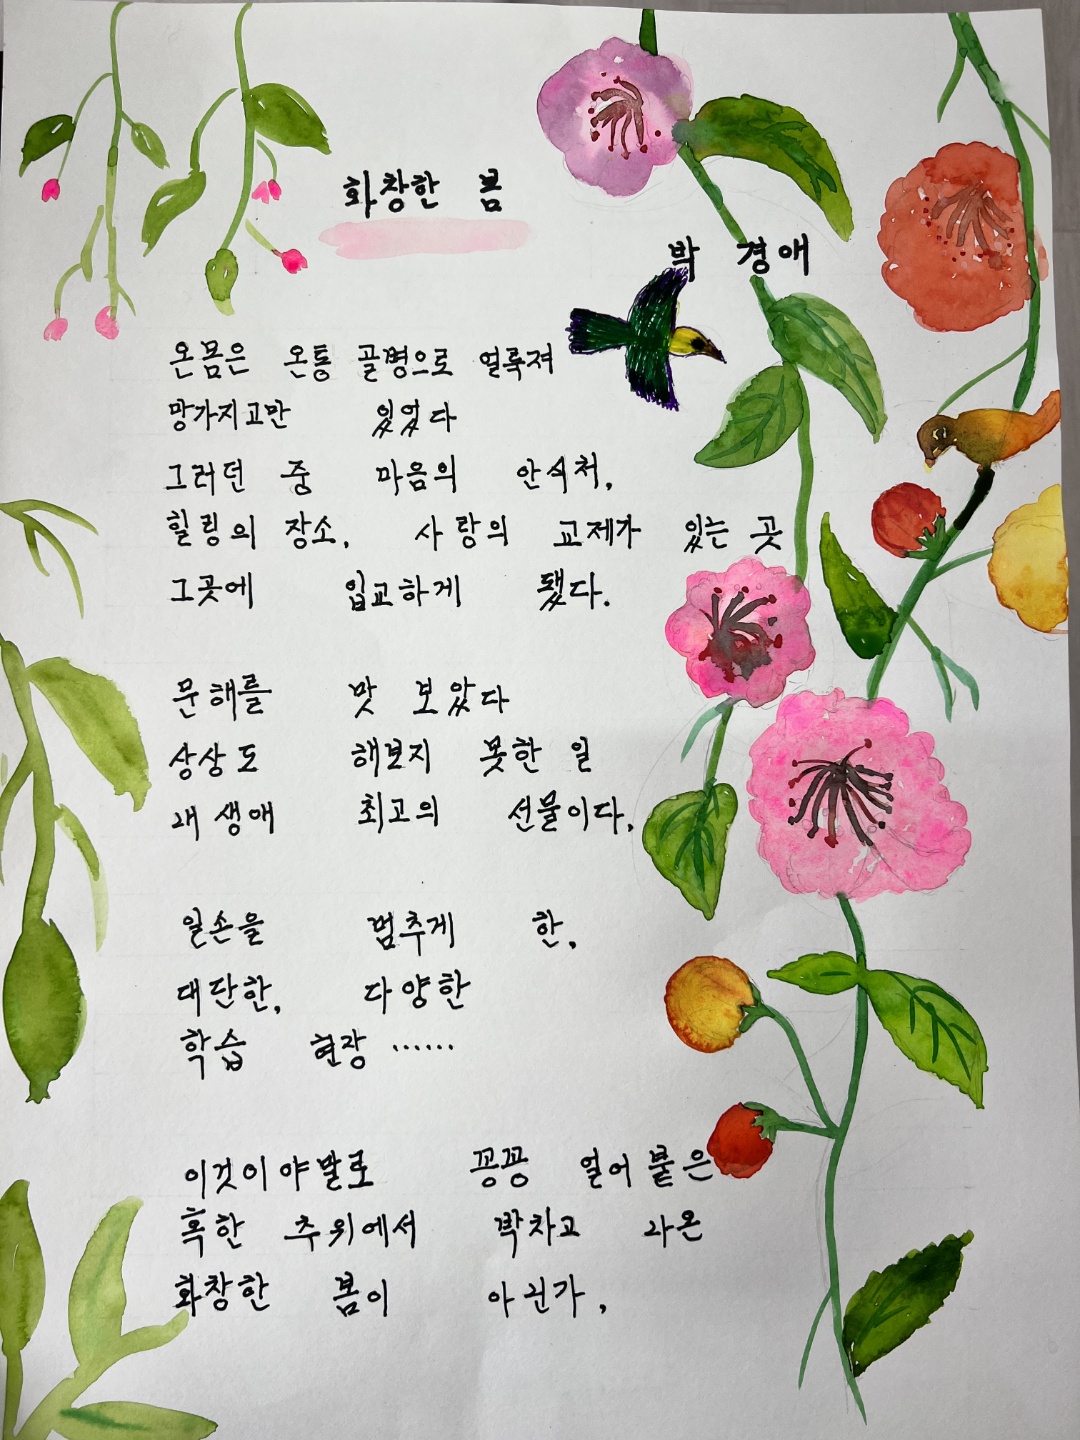 화창한 봄
박 경애
온몸은 온통 골병으로 얼룩져
망가지고만 있었다
그러던 중 마음의 안식처,
힐링의 장소, 사랑의 교제가 있는 곳
그곳에 입교하게 됐다.
문해를 맛 보았다
상상도 해보지 못한 일
내 생애 최고의 선물이다,
일손을 멈추게 한,
대단한, 다양한
학습 현장 ······
이것이야말로 꽁꽁 얼어붙은
혹한 추위에서 박차고 나온
화창한 봄이 아닌가,